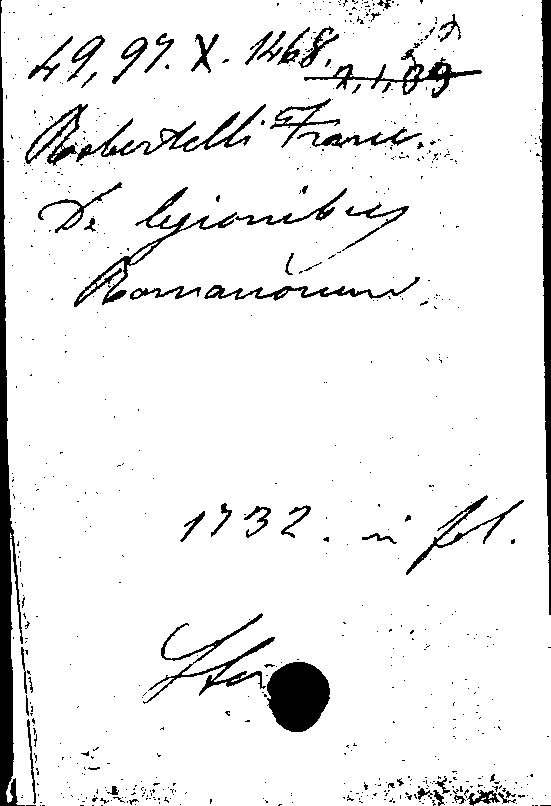 49, 97. X. 1468.
7, 1, 89
Robertelli Franc.
De legionibus
Romanorum.
1732. in fol.